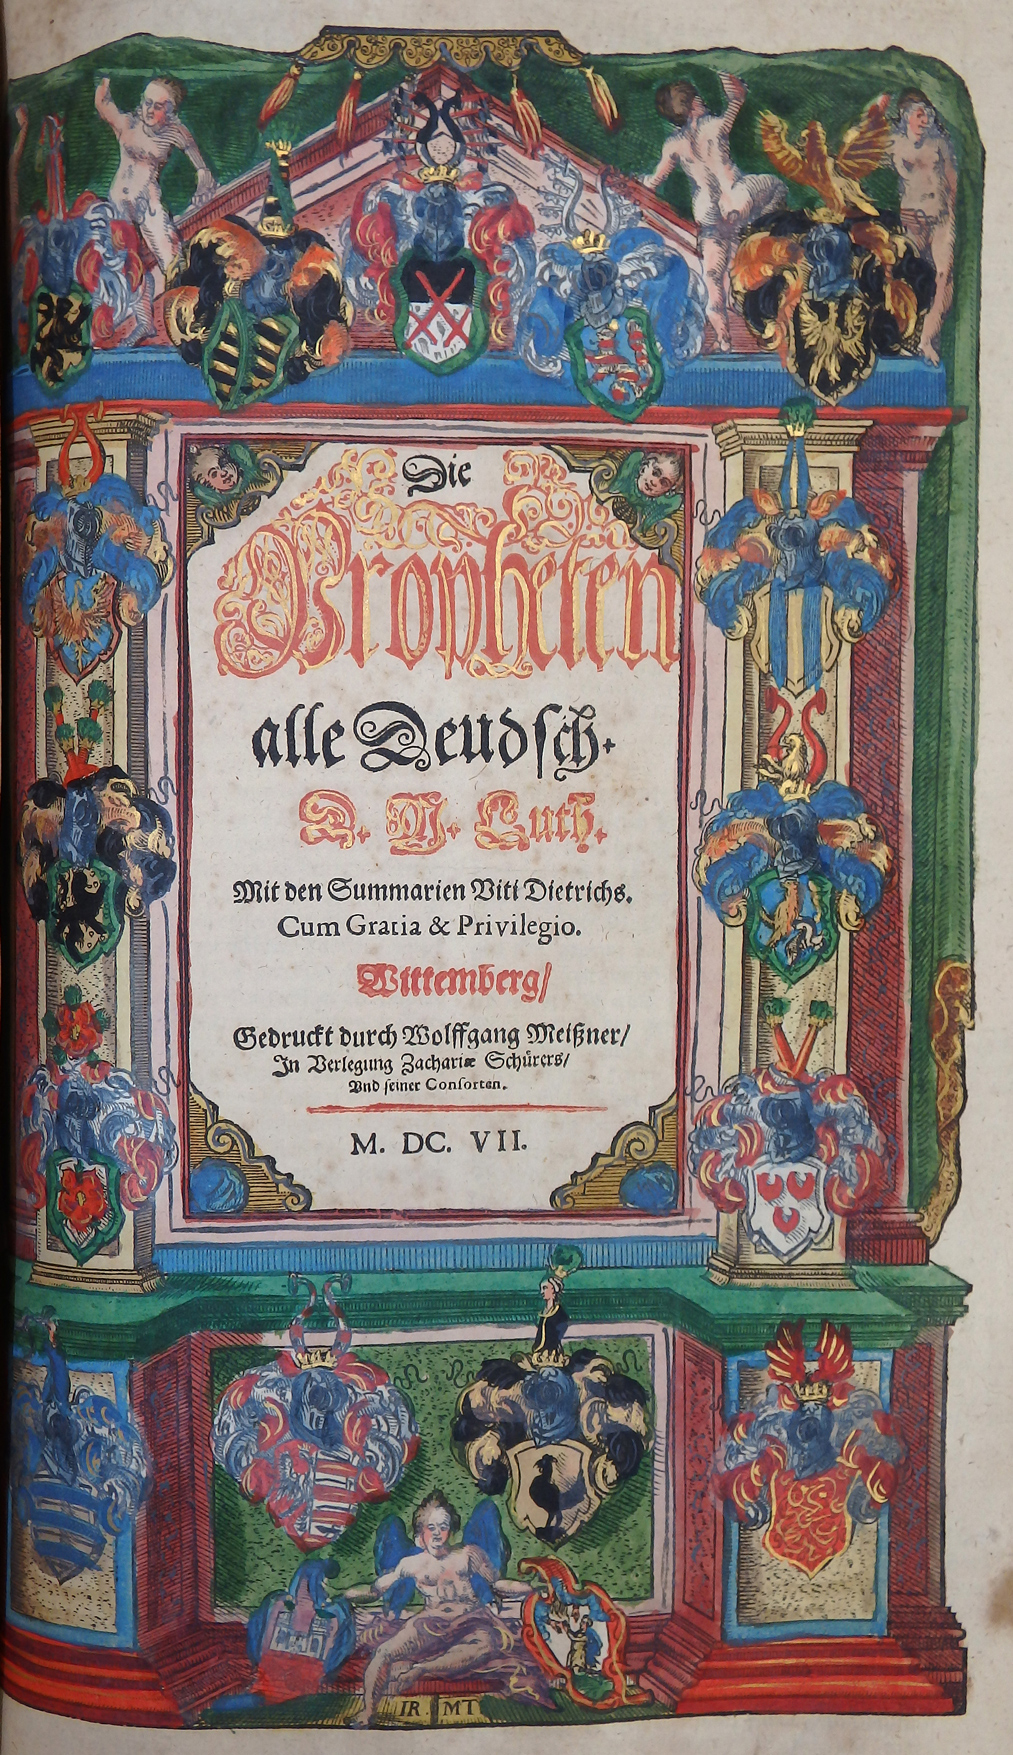 Die
Propheten
alle Deudsch.
D. M. Luth.
Mit den Summarien Viti Dietrichs.
Cum Gratia & Privilegio.
Wittemberg/
Gedruckt durch Wolffgang Meißner/
In Verlegung Zachariæ Schürers/
Vnd seiner Consorten.
M. DC. VII.
IR. MT